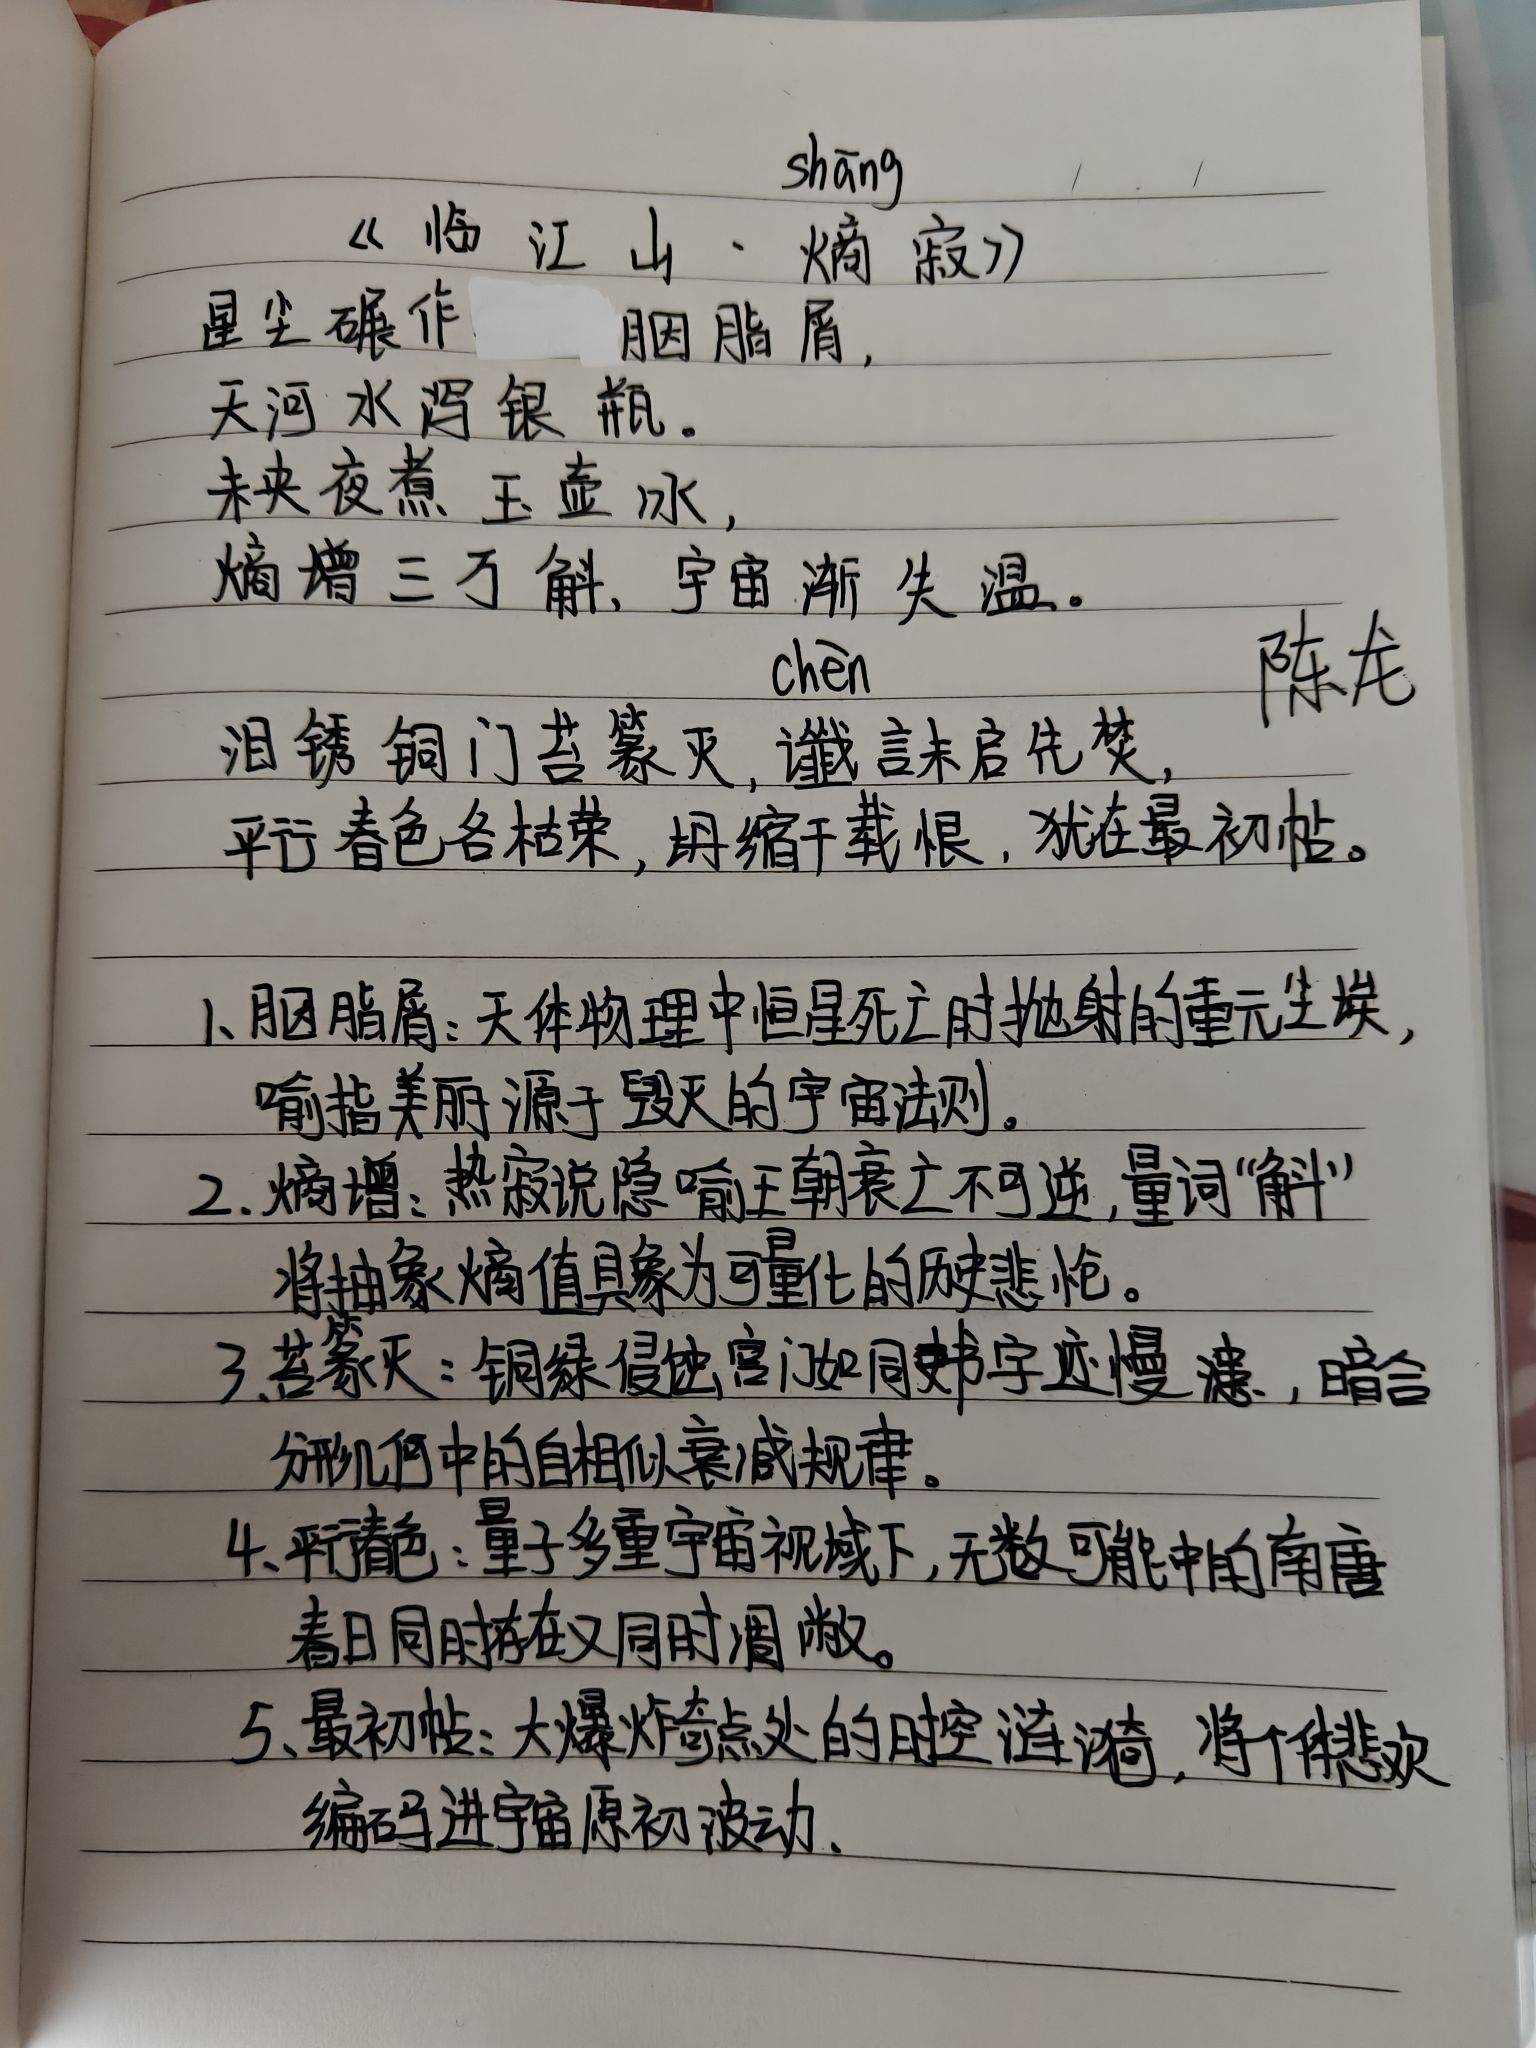 shāng
《临江山·熵寂》
星尘碾作 胭脂屑,
天河水泻银瓶。
未央夜煮玉壶冰,
熵增三万斛,宇宙渐失温。
chèn
陈龙
泪锈铜门苔篆灭,谶言未启先焚,
平行春色各枯荣,坍缩千载恨,犹在最初帖。
1、胭脂屑:天体物理中恒星死亡时抛射的重元尘埃,
喻指美丽源于毁灭的宇宙法则。
2.熵增:热寂说隐喻王朝衰亡不可逆,量词“斛”
将抽象熵值具象为可量化的历史悲怆。
3、苔篆灭:铜绿侵蚀宫门如同史书字迹慢漶,暗合
分形几何中的自相似衰减规律。
4、平行春色:量子多重宇宙视域下,无数可能中的南唐
春日同时存在又同时凋敝。
5、最初帖:大爆炸奇点处的时空涟漪,将个体悲欢
编码进宇宙原初波动、